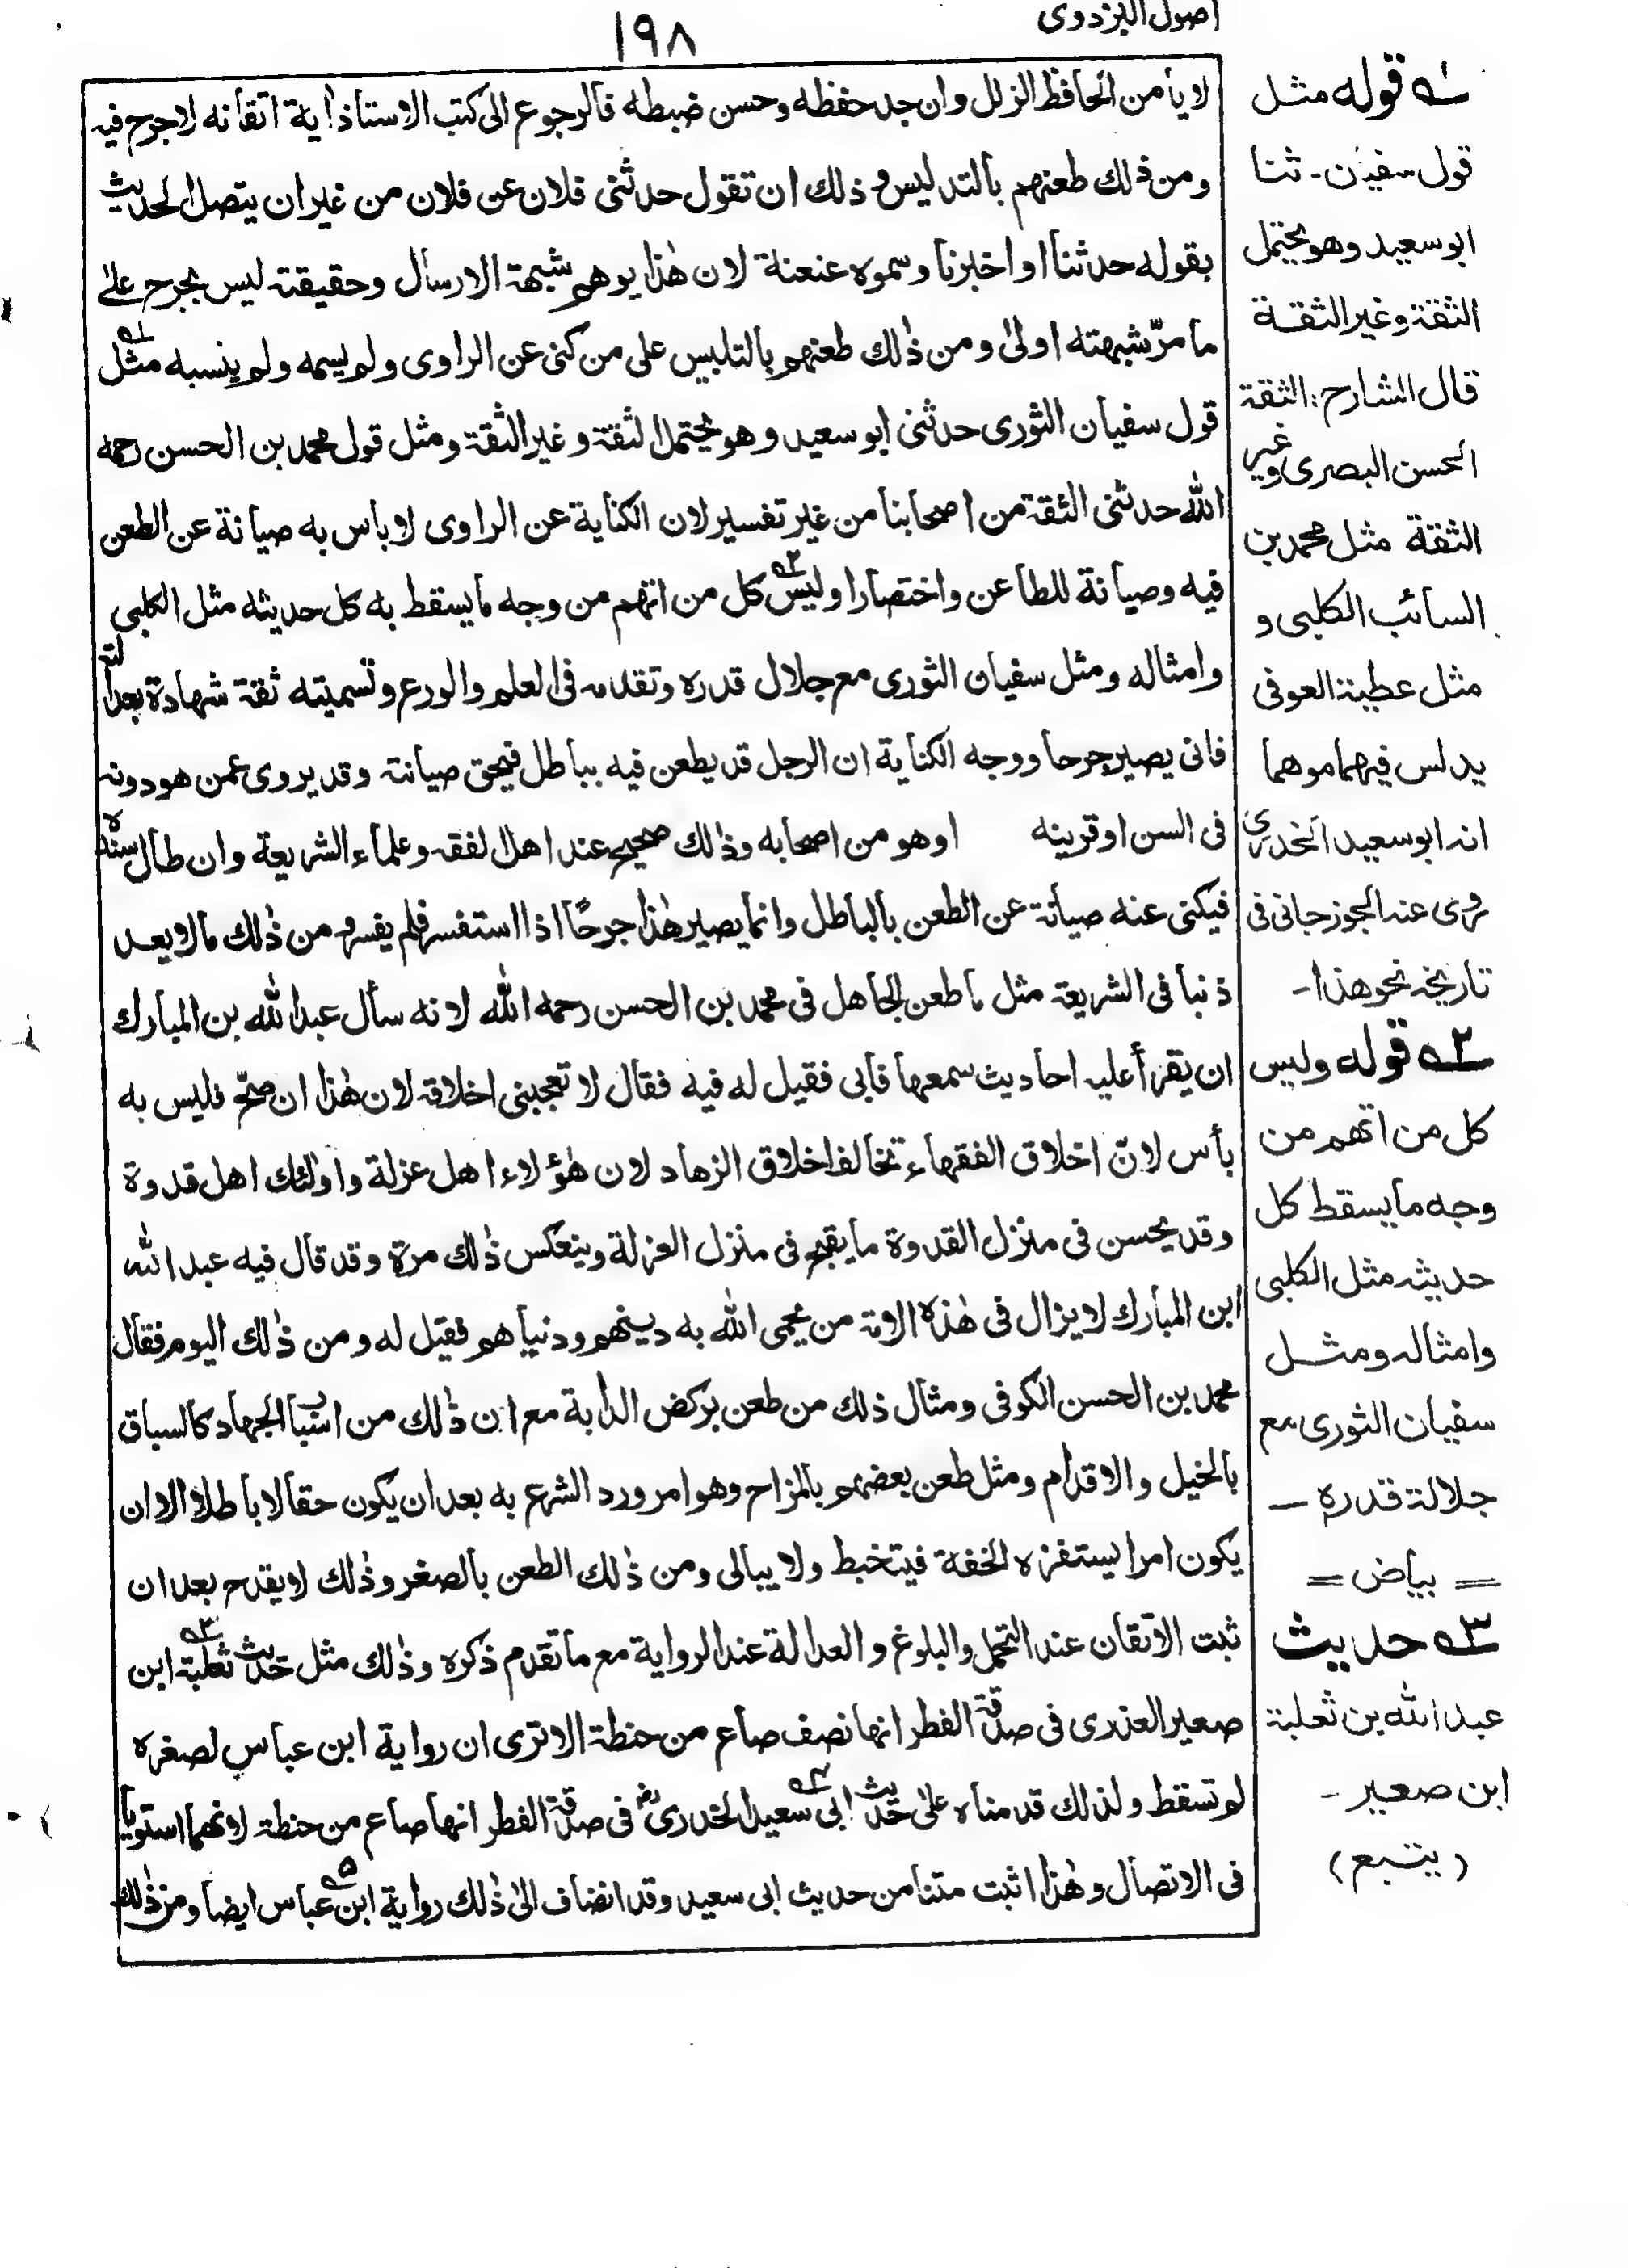 اصول البزدوی
١٩٨
لا يأمن الحافظ الزلل وان جد حفظه وحسن ضبطه فالرجوع الى كتب الاستاذ آية اتقانه لا جرح فيه
ومن ذلك طعنهم بالتدليس وذلك ان تقول حدثنى فلان عن فلان من غير ان يتصل الحديث
بقوله حدثنا او اخبرنا وسموه عنعنة لان هٰذا يوهم شبهة الارسال وحقيقته ليس بجرح علىٰ
ما مرّ شبهته اولىٰ ومن ذٰلك طعنهم بالتلبيس على من كنى عن الراوى ولم يسمه ولم ينسبه مثل ١ؔ
قول سفيان الثورى حدثنى ابو سعيد وهو يحتمل الثقة وغير الثقة ومثل قول محمد بن الحسن رحمه
الله حدثنى الثقة من اصحابنا من غير تفسير لان الكناية عن الراوى لا باس به صيانة عن الطعن
فيه وصيانة للطاعن واختصارا وليس ٢ؔ كل من اتهم من وجه ما يسقط به كل حديثه مثل الكلبى
وامثاله ومثل سفيان الثورى مع جلال قدره وتقدمه فى العلم والورع وتسميته ثقة شهادة بعدالته
فانى يصير جرحا ووجه الكناية ان الرجل قد يطعن فيه بباطل فيحق صيانته وقد يروى عمن هو دونه
فى السن او قرينه او هو من اصحابه وذٰلك صحيح عند اهل الفقه وعلماء الشريعة وان طال سنده
فيكنى عنه صيانة عن الطعن بالباطل وانما يصير هٰذا جرحًا اذا استفسر فلم يفسر ومن ذٰلك ما لا يعد
ذنبا فى الشريعة مثل ما طعن الجاهل فى محمد بن الحسن رحمه الله لانه سأل عبد الله بن المبارك
ان يقرأ عليه احاديث سمعها فابى فقيل له فيه فقال لا تعجبنى اخلاقه لان هٰذا ان صحّ فليس به
بأس لانّ اخلاق الفقهاء تخالف اخلاق الزهاد لان هٰؤلاء اهل عزلة واولٰئك اهل قدوة
وقد يحسن فى منزل القدوة ما يقبح فى منزل العزلة وينعكس ذٰلك مرة وقد قال فيه عبد الله
ابن المبارك لا يزال فى هٰذه الامة من يحمى الله به دينهم ودنياهم فقيل له ومن ذٰلك اليوم فقال
محمد بن الحسن الكوفى ومثال ذلك من طعن بركض الدابة مع ان ذٰلك من اسباب الجهاد كالسباق
بالخيل والاقدام ومثل طعن بعضهم بالمزاح وهو امر ورد الشرع به بعد ان يكون حقا لا باطلا الا ان
يكون امرا يستفزه الخفة فيتخبط ولا يبالى ومن ذٰلك الطعن بالصغر وذٰلك لا يقدح بعد ان
ثبت الاتقان عند التحمل والبلوغ والعدالة عند الرواية مع ما تقدم ذكره وذٰلك مثل حديث ٣ؔ ثعلبة ابن
صعير العذرى فى صدقة الفطر انها نصف صاع من حنطة الا ترى ان رواية ابن عباس لصغره
لم تسقط ولذلك قدمناه علىٰ حديث ٤ؔ ابى سعيد الخدرىؓ فى صدقة الفطر انها صاع من حنطة لانهما استويا
فى الاتصال وهٰذا اثبت متنا من حديث ابى سعيد وقد انضاف الىٰ ذٰلك رواية ٥ؔ ابن عباس ايضا ومن ذٰلك
١ؔ قوله مثل
قول سفيان ـ ثنا
ابو سعيد وهو يحتمل
الثقة وغير الثقة
قال الشارح: الثقة
الحسن البصرى وغير
الثقة مثل محمد بن
السائب الكلبى و
مثل عطية العوفى
يدلس فيهما موهما
انه ابو سعيد الخدرى
روى عنه الجوزجانى فى
تاريخه نحو هذا ـ
٢ؔ قوله وليس
كل من اتهم من
وجه ما يسقط كل
حديثه مثل الكلبى
وامثاله ومثل
سفيان الثورى مع
جلالة قدره ـ
= بياض =
٣ؔ حديث
عبد الله بن ثعلبة
ابن صعير ـ
(يتبع)